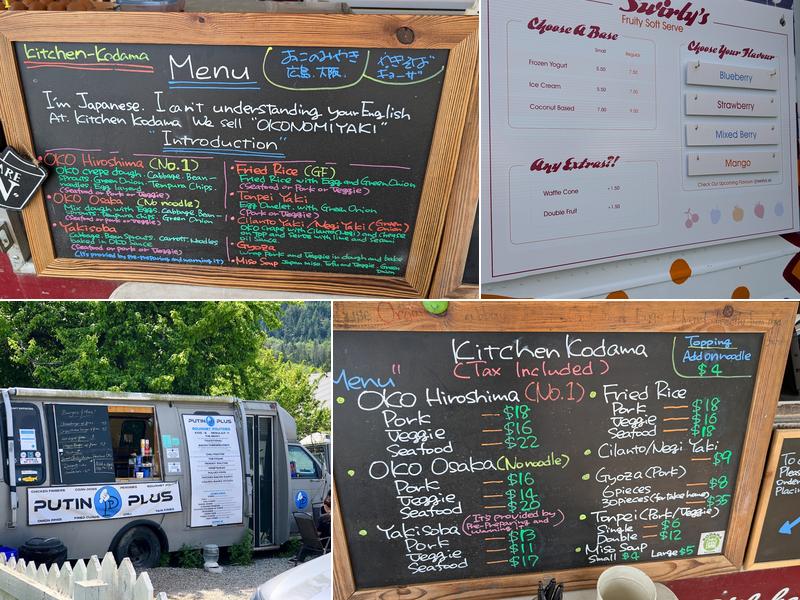 Kitchen-Kodama
Menu
おこのみやき
広島.大阪.
やきそば
ギョーザ
I'm Japanese. I can't understanding your English
At Kitchen Kodama We sell "OKONOMIYAKI"
"Introduction"
OKO Hiroshima (No.1)
OKO crepe dough. Cabbage. Bean-
Sprouts. Green Onion. Tempura Chips.
noodles. Egg layerd
(Seafood or Pork or Veggie)
OKO Osaka (No noodle)
Mix dough with Eggs. Cabbage. Bean-
Sprouts. Tempura chips. Green Onion
(Seafood or pork or Veggie)
Yakisoba
Cabbage. Bean Sprouts. Carrott. Noodles
baked in OKO Sauce
(Seafood or pork or Veggie)
(It's provided by Pre-preparing and warming it)
Fried Rice (GF)
Fried Rice with Egg and Green Onion
(Seafood or Pork or Veggie)
Tonpei Yaki
Egg Omelet. with Green Onion
(Pork or Veggie)
Cilanto Yaki / Negi Yaki (Green Onion)
OKO crape with Cilanto(Negi) and cheese
on Top and serve with lime and sesami
oil Sauce.
Gyoza
Wrap Pork and Veggie in dough and bake
Miso Soup Japan miso. Tofu and Veggie. Green
Onion
ARE
N.
Swirly's
Fruity Soft Serve
Choose A Base
Small Regular
Frozen Yogurt 5.00 7.50
Ice Cream 5.00 7.50
Coconut Based 7.00 9.00
Choose Your Flavour
Blueberry
Strawberry
Mixed Berry
Mango
Any Extras?!
Waffle Cone +1.50
Double Fruit +1.50
PUTIN PLUS
CHICKEN FINGERS
CORN DOGS
PEROGIES
PUTIN PLUS
ONION RINGS
Kitchen Kodama
(Tax Included)
Menu"
Topping
Add on noodle
$4
OKO Hiroshima (No.1)
Pork — $18
Veggie — $16
Seafood — $22
OKO Osaka (No noodle)
Pork — $16
Veggie — $14
Seafood — $20
Yakisoba (It's provided by
Pre-Preparing and
Warming)
Pork — $13
Veggie — $11
Seafood — $17
Fried Rice
Pork — $18
Veggie — $16
Seafood — $18
Cilanto/Negi Yaki
— $9
Gyoza (Pork)
6pieces — $8
30pieces (for take home) $35
Tonpei (Pork/Veggie)
Single — $6
Double — $12
Miso Soup
Small $4 Large $5